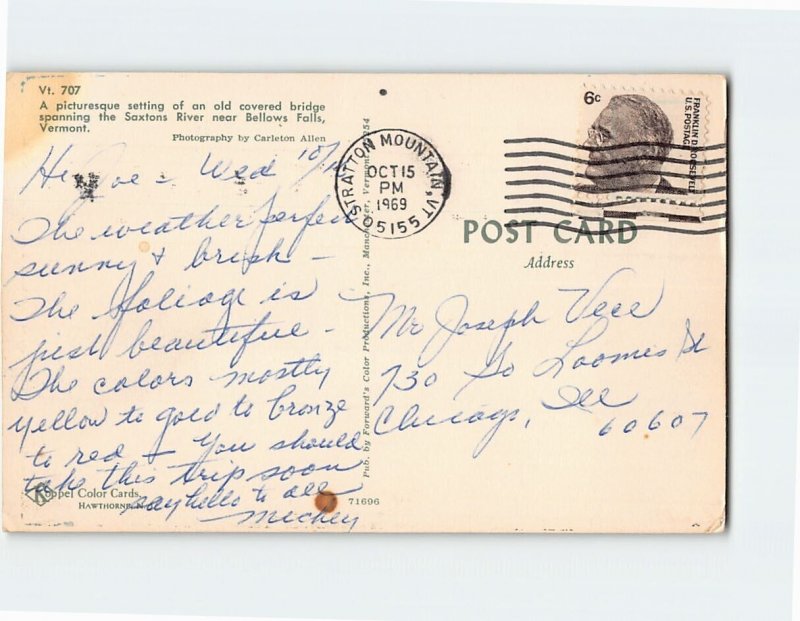 Vt. 707
A picturesque setting of an old covered bridge
spanning the Saxtons River near Bellows Falls,
Vermont.
Photography by Carleton Allen
Hi Joe - Wed 10/
The weather perfect
sunny & brisk -
The foliage is
just beautiful -
The colors mostly
yellow to gold to bronze
to red - You should
take this trip soon
say hello to all
Mickey
Koppel Color Cards
HAWTHORNE, N.J.
71696
Pub. by Forward's Color Productions, Inc., Manchester, Vermont 05254
STRATTON MOUNTAIN, VT
OCT 15
PM
1969
05155
6c
FRANKLIN D. ROOSEVELT
U.S. POSTAGE
POST CARD
Address
Mr Joseph Vece
730 So Loomis St
Chicago, Ill
60607